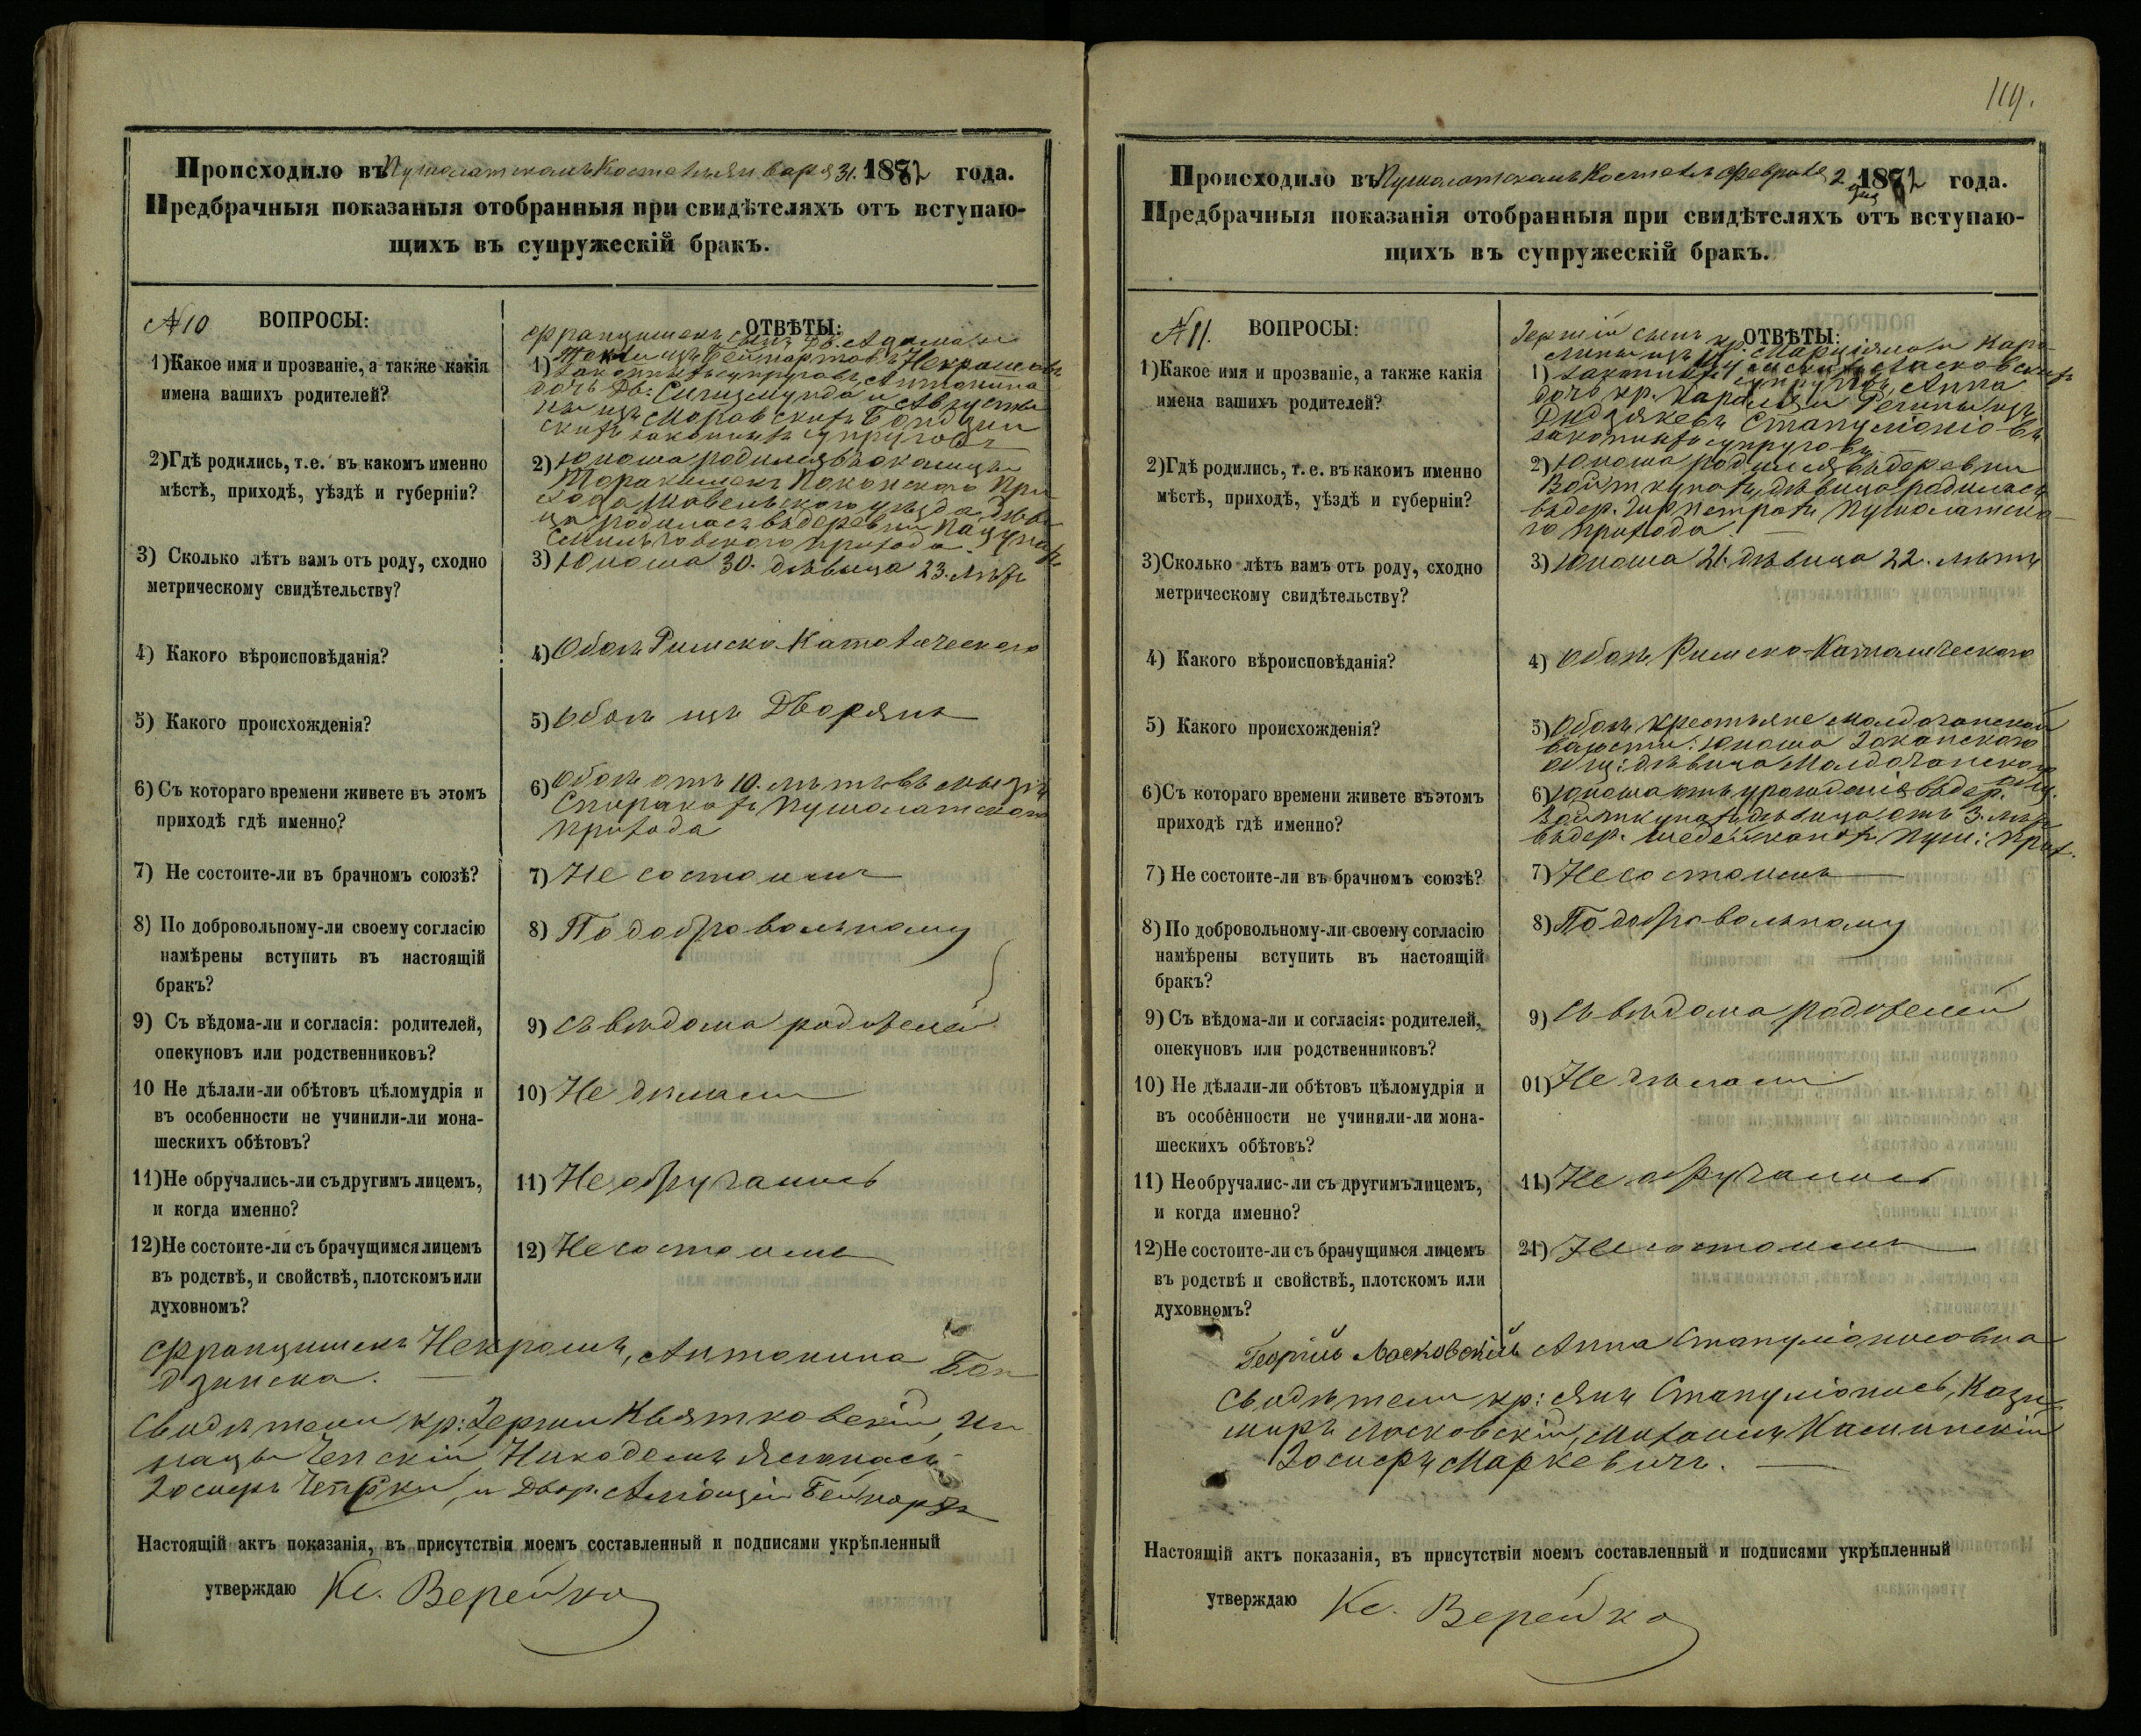 119.
Происходило въ Пушолатскомъ Костелѣ января 31. 1882 года.
Предбрачныя показаныя отобранныя при свидѣтеляхъ отъ вступаю-
щихъ въ супружескій бракъ.
№ 10 ВОПРОСЫ:
1)Какое имя и прозваніе, а также какія
имена вашихъ родителей?
2)Гдѣ родились, т.е. въ какомъ именно
мѣстѣ, приходѣ, уѣздѣ и губерніи?
3) Сколько лѣтъ вамъ отъ роду, сходно
метрическому свидѣтельству?
4) Какого вѣроисповѣданія?
5) Какого происхожденія?
6) Съ котораго времени живете въ этомъ
приходѣ гдѣ именно?
7) Не состоите-ли въ брачномъ союзѣ?
8) По добровольному-ли своему согласію
намѣрены вступить въ настоящій
бракъ?
9) Съ вѣдома-ли и согласія: родителей,
опекуновъ или родственниковъ?
10 Не дѣлали-ли обѣтовъ цѣломудрія и
въ особенности не учинили-ли мона-
шескихъ обѣтовъ?
11)Не обручались-ли съ другимъ лицемъ,
и когда именно?
12)Не состоите-ли съ брачущимся лицемъ
въ родствѣ, и свойствѣ, плотскомъ или
духовномъ?
ОТВѢТЫ:
Францишекъ сынъ Дв. Адама и
1) Теклы изъ Бейнартовъ Некрашовъ
законныхъ супруговъ, Антонина
дочь Дв: Сигизмунда и Августы
ны изъ Моравскихъ Бондзин
скихъ законныхъ супруговъ
2) Юноша родился въ околицы
Покойского При
хода Шавельского уѣзда, дѣви
ца родилась въ деревни
прихода.
3) Юноша 30. дѣвица 23. лѣтъ
4) Обоѣ Римско-Католического
5) Обоѣ изъ Дворянъ
6) Обоѣ отъ 10. лѣтъ въ мызѣ
Пушолатского
прихода
7) Не состоимъ
8) По добровольному
9) Съ вѣдома родителей
10) Не дѣлали
11) Не обручались
12) Не состоимъ
Францишекъ Некрашъ, Антонина Бон
дзинска.
Свидѣтели кр: Іержии Квятковскій, Иг
нацы Чепскій Никодемъ
Іосифъ и Двор. Бейнартъ
Настоящій актъ показанія, въ присутствіи моемъ составленный и подписями укрѣпленный
утверждаю Кс. Верейко
Происходило въ Пушолатскомъ Костелѣ Февраля 2 дня 1882 года.
Предбрачныя показанія отобранныя при свидѣтеляхъ отъ вступаю-
щихъ въ супружескій бракъ.
№ 11. ВОПРОСЫ:
1)Какое имя и прозваніе, а также какія
имена вашихъ родителей?
2)Гдѣ родились, т. е. въ какомъ именно
мѣстѣ, приходѣ, уѣздѣ и губерніи?
3)Сколько лѣтъ вамъ отъ роду, сходно
метрическому свидѣтельству?
4) Какого вѣроисповѣданія?
5) Какого происхожденія?
6)Съ котораго времени живете въ этомъ
приходѣ гдѣ именно?
7) Не состоите-ли въ брачномъ союзѣ?
8) По добровольному-ли своему согласію
намѣрены вступить въ настоящій
бракъ?
9) Съ вѣдома-ли и согласія: родителей,
опекуновъ или родственниковъ?
10) Не дѣлали-ли обѣтовъ цѣломудрія и
въ особенности не учинили-ли мона-
шескихъ обѣтовъ?
11) Необручалис-ли съ другимъ лицемъ,
и когда именно?
12)Не состоите-ли съ брачущимся лицемъ
въ родствѣ и свойствѣ, плотскомъ или
духовномъ?
ОТВѢТЫ:
Іержій сынъ кр. Марціяна и Каро
лины изъ Ласковскихъ
1) законныхъ супруговъ, Анна
дочь кр. Кароля и Регины изъ
Стапуліонювъ
законныхъ супруговъ
2) Юноша родился въ деревни
Войткунахъ, дѣвица родилась
въ дер. Пушолатска
го прихода.
3) Юноша 21. дѣвица 22. лѣтъ
4) Обоѣ Римско-Католического
5) Обоѣ крестьяне
волости: юноша
общ: дѣвица
6) Юноша отъ урождения въ дер.
Войткунахъ дѣвица отъ 3. лѣтъ
въ дер. Пуш: прих.
7) Не состоимъ
8) По добровольному
9) Съ вѣдома родителей
01) Не дѣлали
11) Не обручались
21) Не состоимъ
Георгій Ласковскій Анна Стапуліонюовна
Свидѣтели кр: Янъ Стапуліонисъ, Кази
миръ Ласковскій, Михаилъ Каминскій
Іосифъ Маркевичъ.
Настоящій актъ показанія, въ присутствіи моемъ составленный и подписями укрѣпленный
утверждаю Кс. Верейко